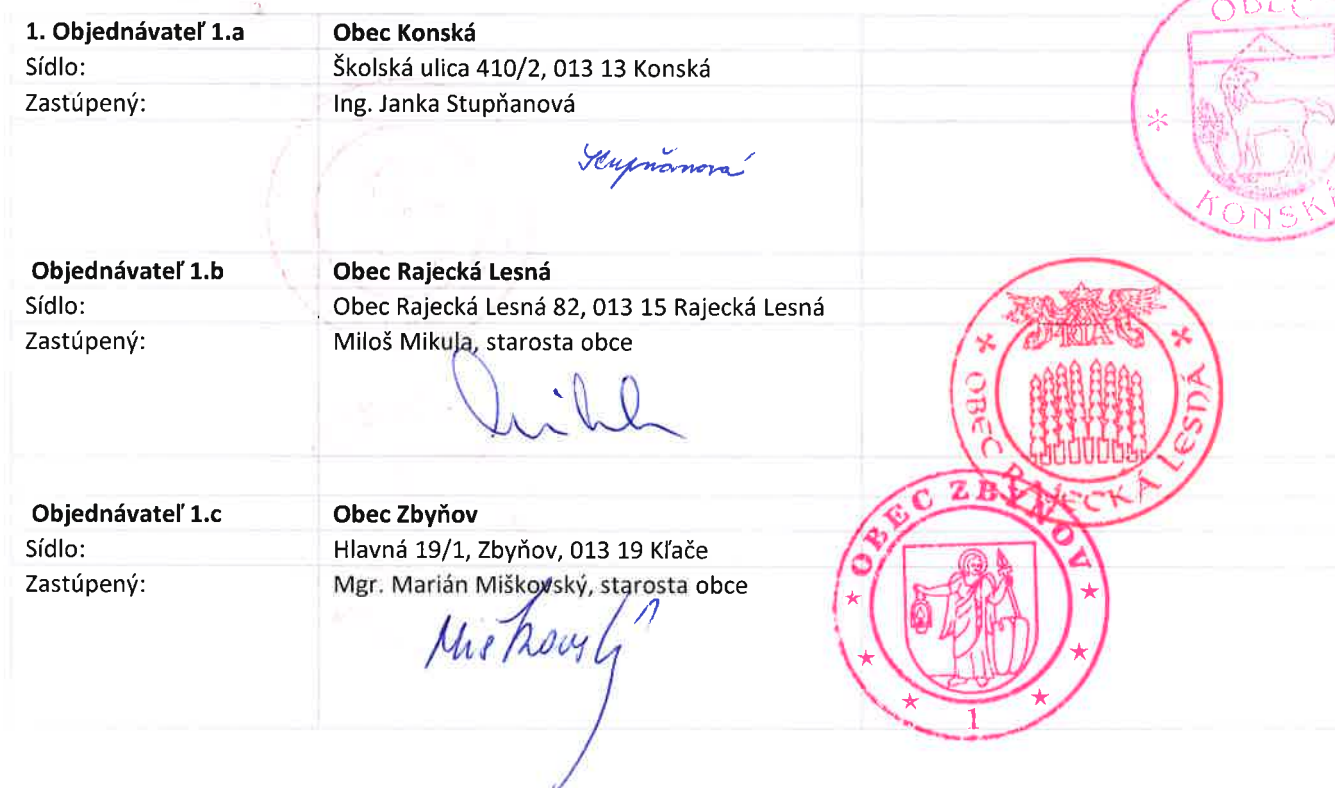 1. Objednávateľ 1.a Obec Konská
Sídlo: Školská ulica 410/2, 013 13 Konská
Zastúpený: Ing. Janka Stupňanová
Stupňanová
OBEC
KONSKÁ
Objednávateľ 1.b Obec Rajecká Lesná
Sídlo: Obec Rajecká Lesná 82, 013 15 Rajecká Lesná
Zastúpený: Miloš Mikula, starosta obce
OBEC RAJECKÁ LESNÁ
Objednávateľ 1.c Obec Zbyňov
Sídlo: Hlavná 19/1, Zbyňov, 013 19 Kľače
Zastúpený: Mgr. Marián Miškovský, starosta obce
Miškovský
OBEC ZBYŇOV
1